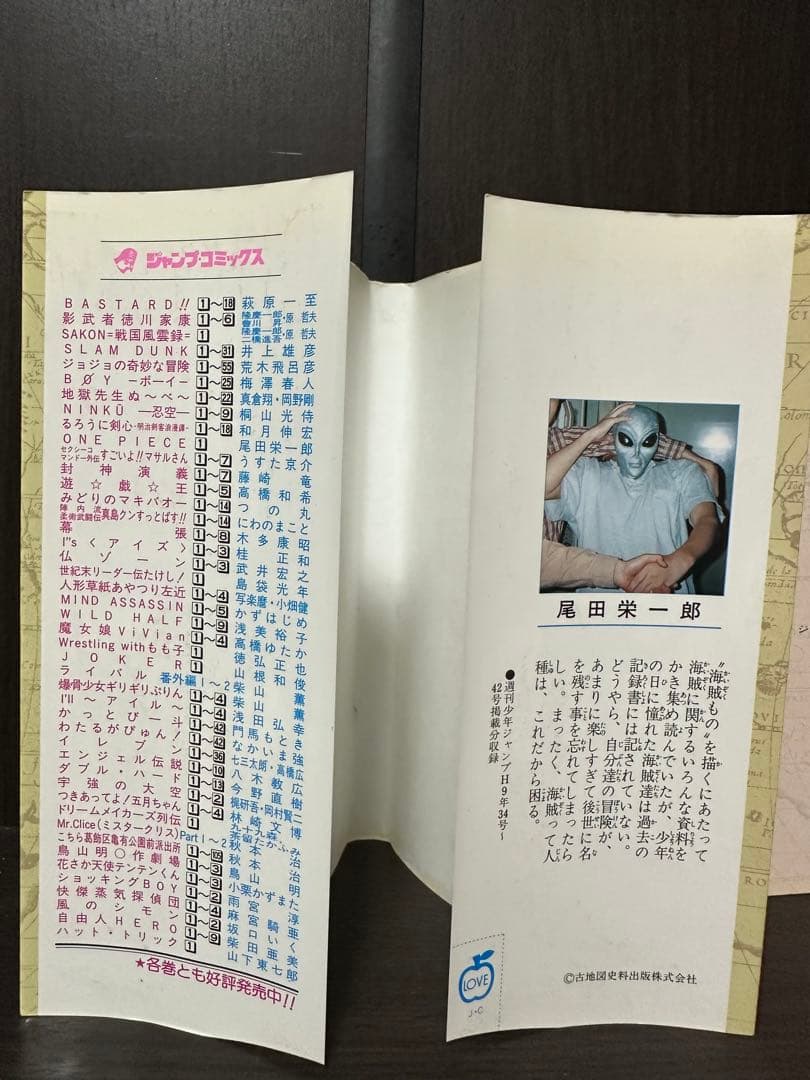 ジャンプ・コミックス
BASTARD!! 1〜18 萩原一至
影武者徳川家康 1〜6 隆慶一郎・會川昇・原哲夫
SAKON=戦国風雲録= 1 隆慶一郎・二橋進吾・原哲夫
SLAM DUNK 1〜31 井上雄彦
ジョジョの奇妙な冒険 1〜55 荒木飛呂彦
BØY —ボーイ— 1〜25 梅澤春人
地獄先生ぬ〜べ〜 1〜22 真倉翔・岡野剛
NINKŪ —忍空— 1〜9 桐山光侍
るろうに剣心・明治剣客浪漫譚・ 1〜18 和月伸宏
ONE PIECE 1 尾田栄一郎
セクシーコマンドー外伝 すごいよ!!マサルさん 1〜7 うすた京介
封神演義 1〜7 藤崎竜
遊☆戯☆王 1〜5 高橋和希
みどりのマキバオー 1〜14 つの丸
陣内流柔術武闘伝 真島クンすっとばす!! 1〜14 にわのまこと
幕張 1〜8 木多康昭
I"s〈アイズ〉 1〜3 桂正和
仏ゾーン 1〜3 武井宏之
世紀末リーダー伝たけし! 1 島袋光年
人形草紙あやつり左近 1〜4 写楽麿・小畑健
MIND ASSASSIN 1〜5 かずはじめ
WILD HALF 1〜9 浅美裕子
魔女娘ViVian 1〜4 高橋ゆたか
Wrestling withもも子 1 徳弘正也
JOKER 1 山根和俊
ライバル 番外編1〜2 柴山薫
爆骨少女ギリギリぷりん 1〜4 柴山薫
I'll〜アイル〜 1〜4 浅田弘幸
かっとび一斗 門馬もとき
わたるがぴゅん! 1〜42 なかいま強
イレブン 七三太朗・高橋広
エンジェル伝説 1〜10 八木教広
ダブル・ハード 1〜13 今野直樹
宇強の大空 1〜2 梶研吾・岡村賢二
つきあってよ!五月ちゃん 1〜4 林崎文博
ドリームメイカーズ列伝 1
Mr.Clice(ミスタークリス) Part1〜2 秋本治
こちら葛飾区亀有公園前派出所 秋本治
鳥山明○作劇場 1〜3 鳥山明
花さか天使テンテンくん 1〜3 小栗かずまた
ショッキングBOY 1〜2 雨宮淳
快傑蒸気探偵団 1〜4 麻宮騎亜
風のシモン 1〜2 坂口いく
自由人HERO 1〜9 柴田亜美
ハット・トリック 1 山下東七郎
★各巻とも好評発売中!!
尾田栄一郎
〝海賊もの〟を描くにあたって
海賊に関するいろんな資料を
かき集め読んでいたが、少年
の日に憧れた海賊達は過去の
記録書には記されていない。
どうやら、自分達の冒険が、
あまりに楽しすぎて後世に名
を残す事を忘れてしまったら
しい。まったく、海賊って人
種は、これだから困る。
●週刊少年ジャンプH9年34号〜
42号掲載分収録
©古地図史料出版株式会社
LOVE
J・C